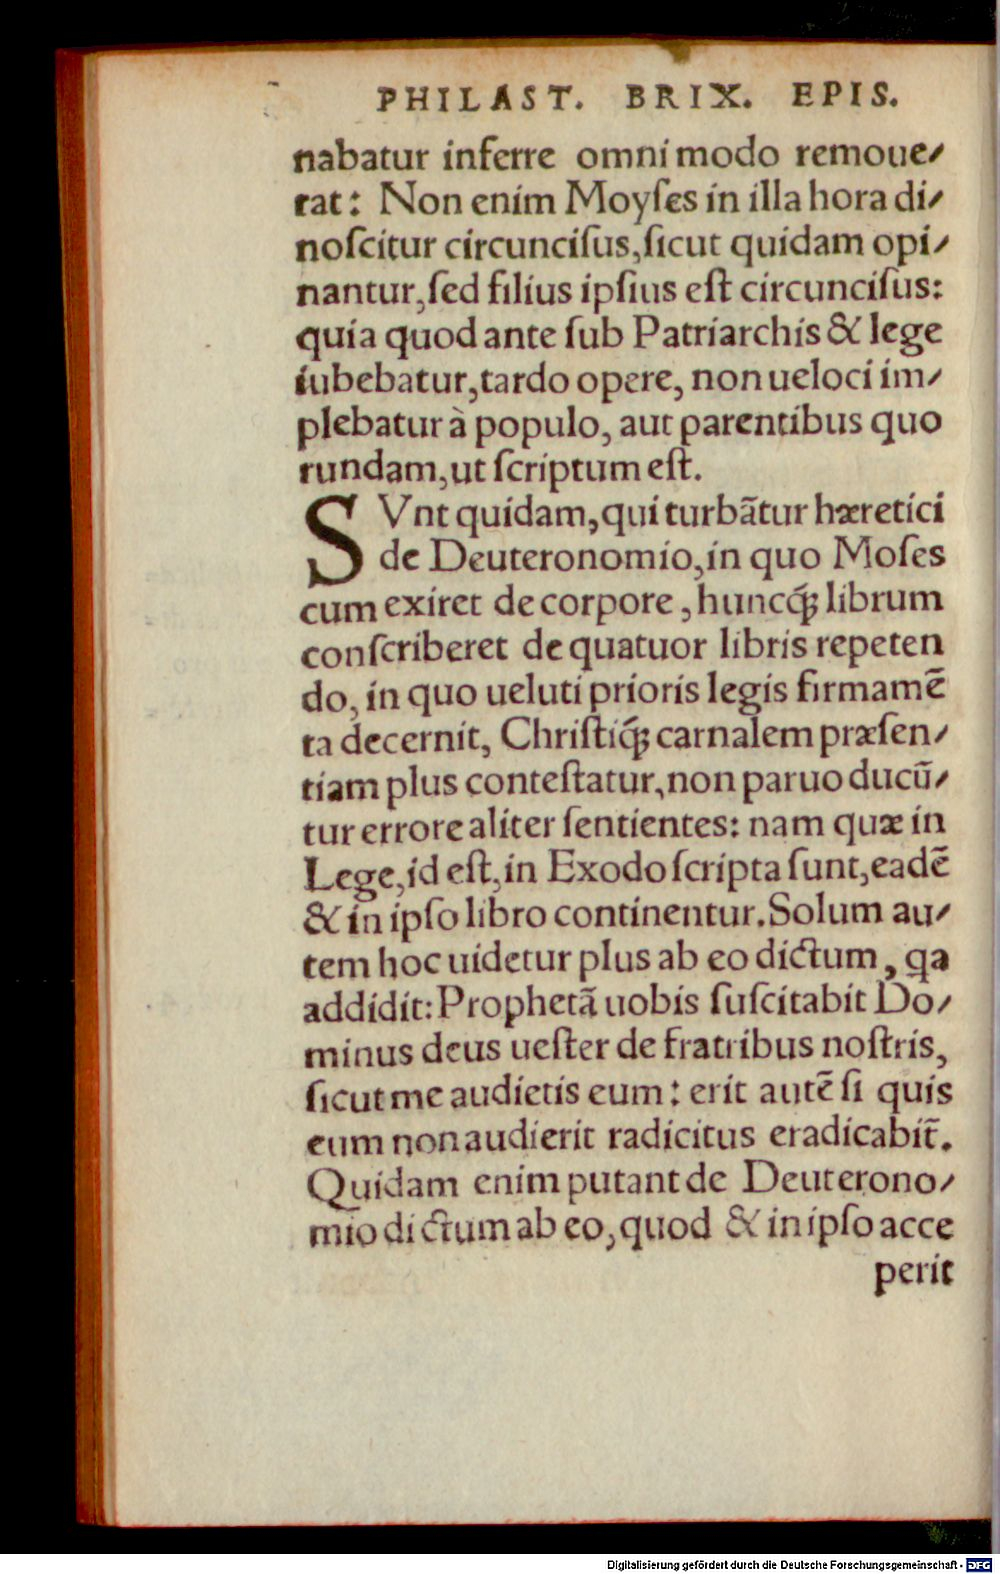 PHILAST. BRIX. EPIS.
nabatur inferre omni modo remoue⸗
rat: Non enim Moyſes in illa hora di⸗
noſcitur circunciſus, ſicut quidam opi⸗
nantur, ſed filius ipſius eſt circunciſus:
quia quod ante ſub Patriarchis & lege
iubebatur, tardo opere, non ueloci im⸗
plebatur à populo, aut parentibus quo
rundam, ut ſcriptum eſt.
SVnt quidam, qui turbãtur hæretici
de Deuteronomio, in quo Moſes
cum exiret de corpore, huncq́ꝫ librum
conſcriberet de quatuor libris repeten
do, in quo ueluti prioris legis firmamẽ
ta decernit, Chriſtiq́ꝫ carnalem præſen⸗
tiam plus conteſtatur, non paruo ducũ⸗
tur errore aliter ſentientes: nam quæ in
Lege, id eſt, in Exodo ſcripta ſunt, eadẽ
& in ipſo libro continentur. Solum au⸗
tem hoc uidetur plus ab eo dictum, qa
addidit: Prophetã uobis ſuſcitabit Do⸗
minus deus ueſter de fratribus noſtris,
ſicut me audietis eum: erit autẽ ſi quis
eum non audierit radicitus eradicabit̃.
Quidam enim putant de Deuterono⸗
mio dictum ab eo, quod & in ipſo acce
perit
Digitalisierung gefördert durch die Deutsche Forschungsgemeinschaft - DFG